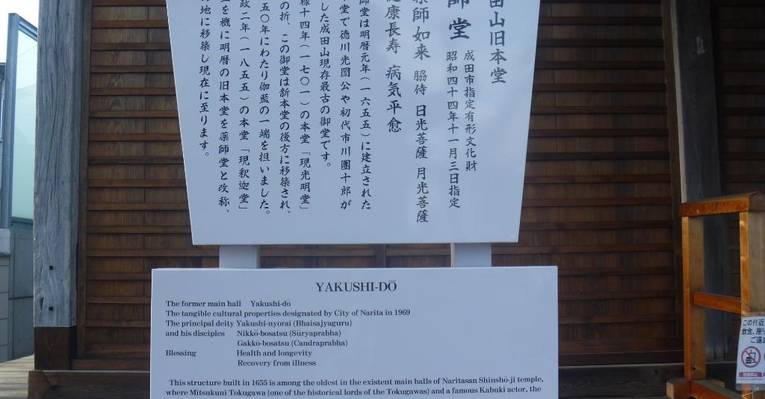 田山旧本堂
師堂
成田市指定有形文化財
昭和四十四年十一月三日指定
薬師如来 脇侍 日光菩薩 月光菩薩
健康長寿 病気平癒
御堂は明暦元年(一六五五)に建立された
堂で徳川光圀公や初代市川團十郎が
した成田山現存最古の御堂です。
禄十四年(一七〇一)の本堂「現光明堂」
の折、この御堂は新本堂の後方に移築され、
五〇年にわたり伽藍の一端を担いました。
政二年(一八五五)の本堂「現釈迦堂」
を機に明暦の旧本堂を薬師堂と改称、
地に移築し現在に至ります。
YAKUSHI-DŌ
The former main hall Yakushi-do
The tangible cultural properties designated by City of Narita in 1969
The principal deity Yakushi-nyorai (Bhaisajyaguru)
and his disciples Nikkō-bosatsu (Sūryaprabha)
Gakkō-bosatsu (Candraprabha)
Blessing Health and longevity
Recovery from illness
This structure built in 1655 is among the oldest in the existent main halls of Naritasan Shinshō-ji temple,
where Mitsukuni Tokugawa (one of the historical lords of the Tokugawas) and a famous Kabuki actor, the